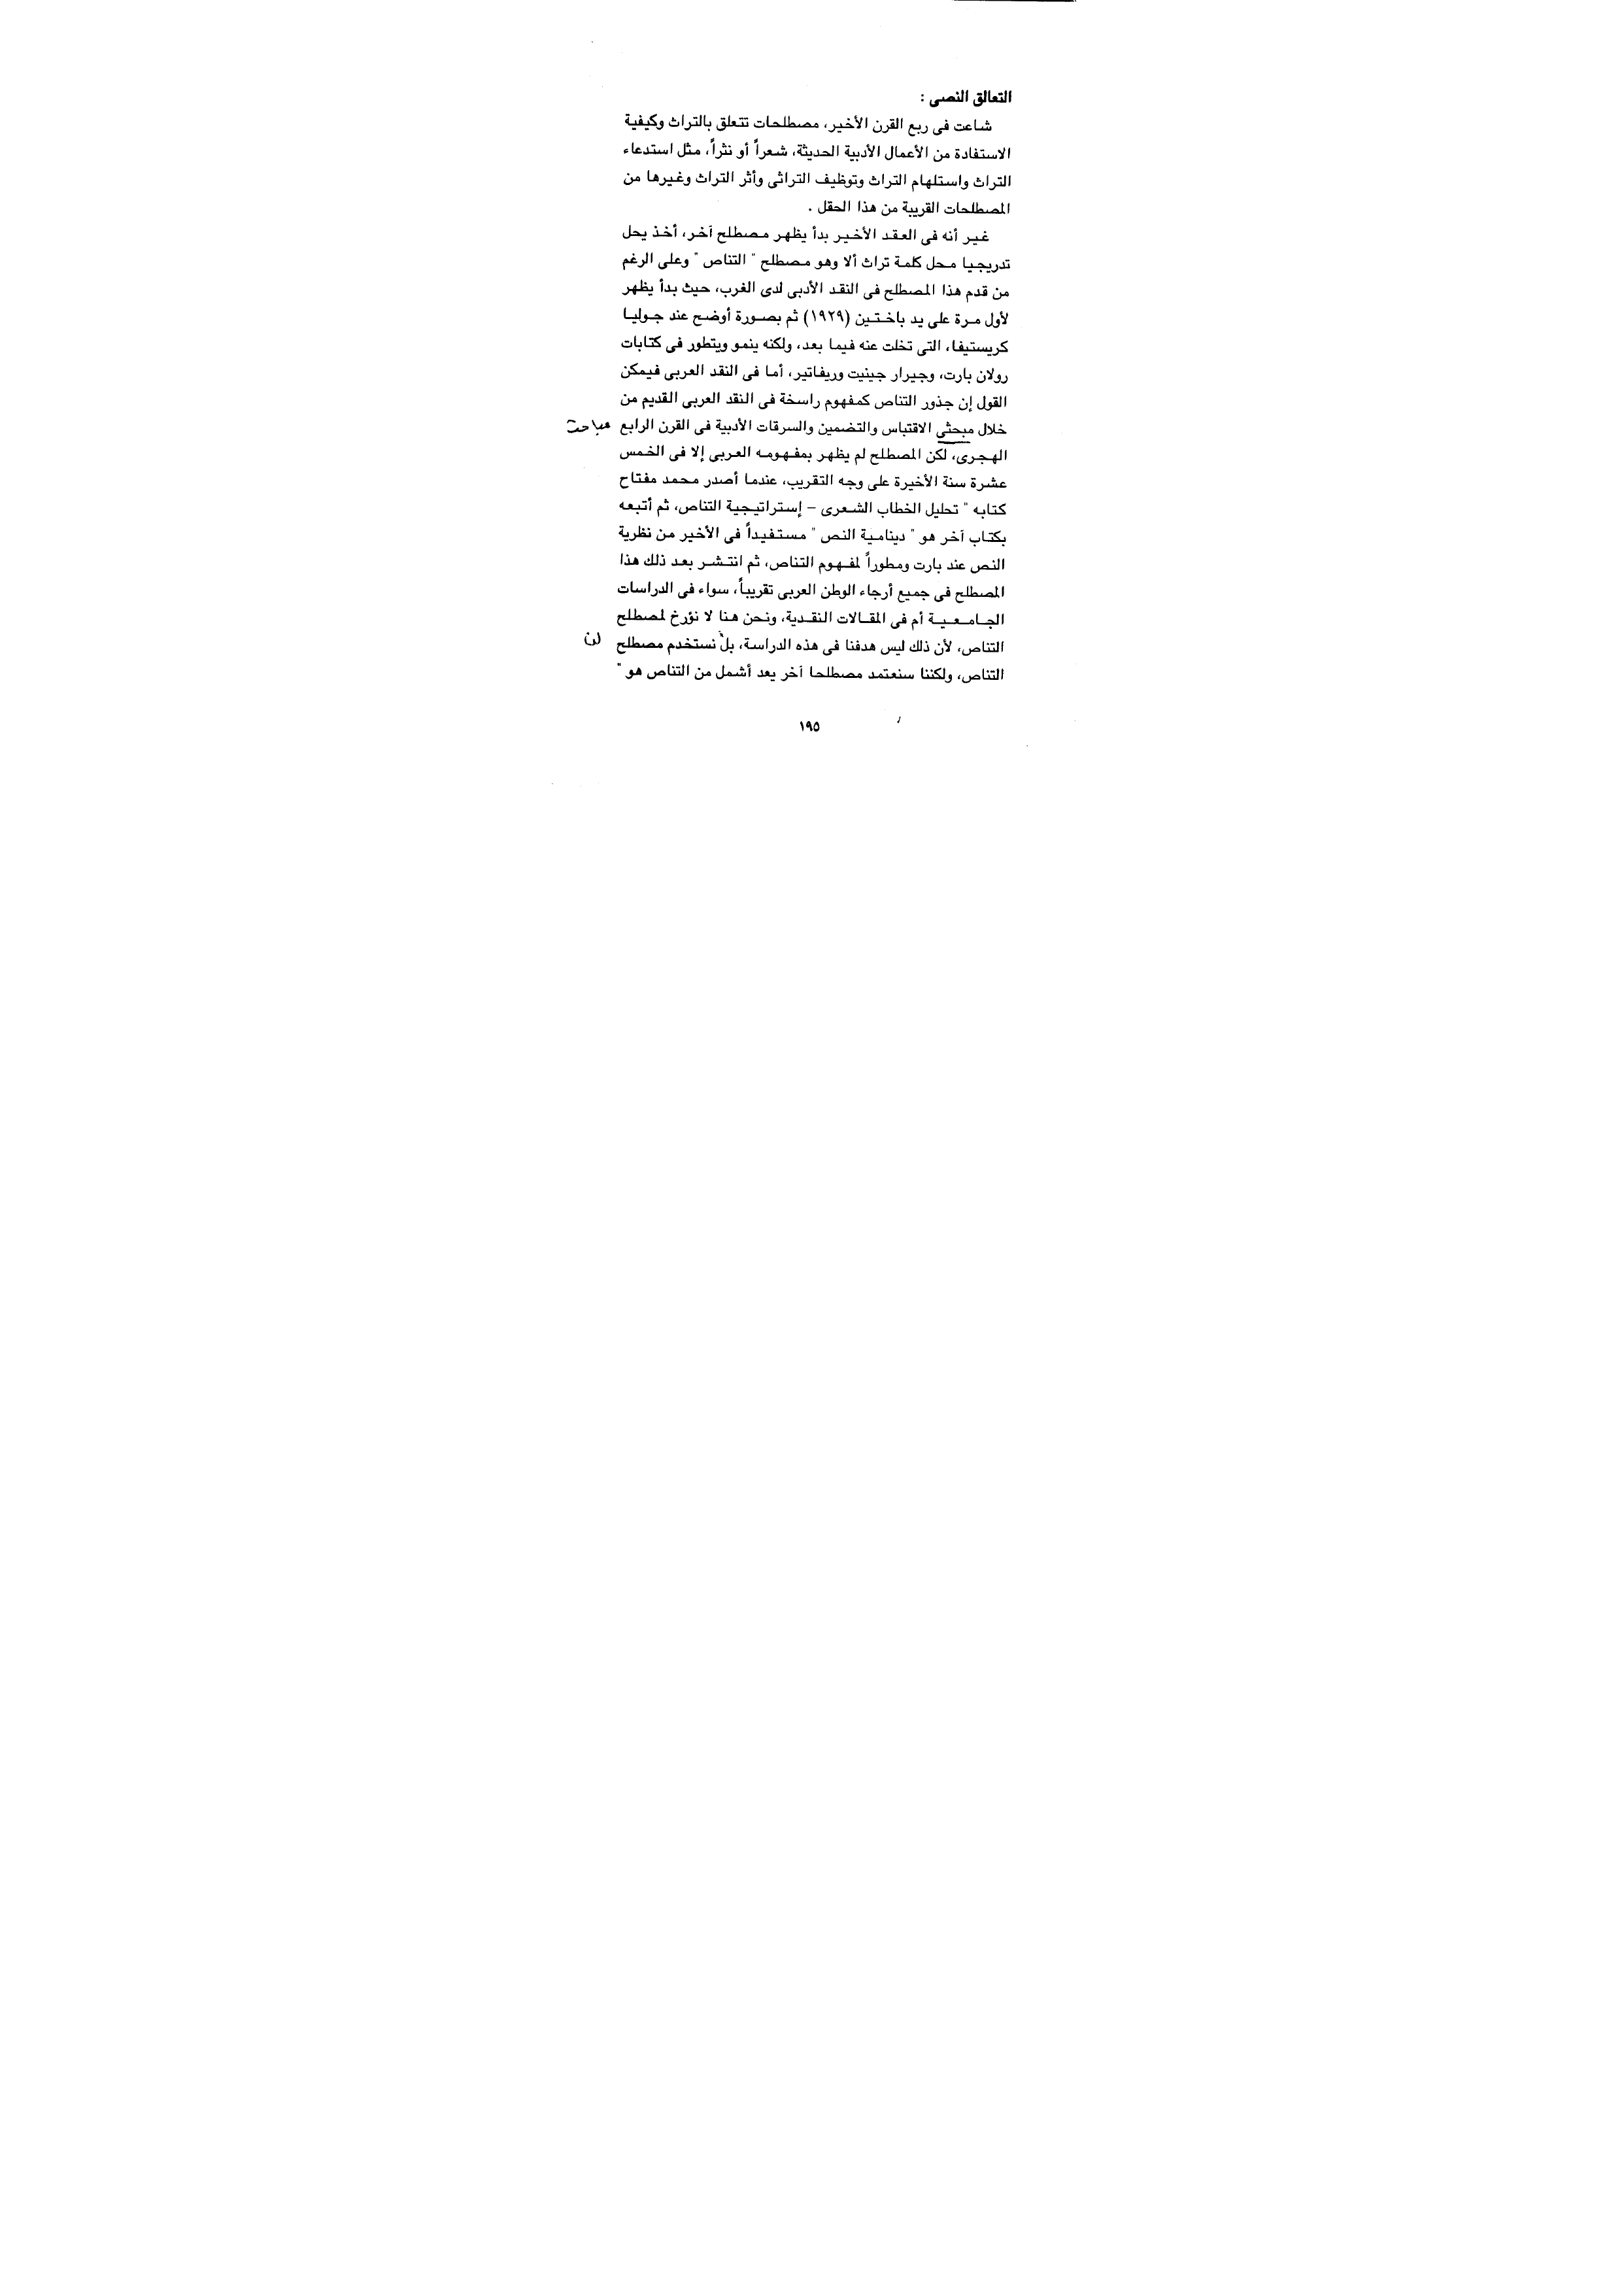 التعالق النصى :
شاعت فى ربع القرن الأخير، مصطلحات تتعلق بالتراث وكيفية
الاستفادة من الأعمال الأدبية الحديثة، شعراً أو نثراً، مثل استدعاء
التراث واستلهام التراث وتوظيف التراثى وأثر التراث وغيرها من
المصطلحات القريبة من هذا الحقل .
غير أنه فى العقد الأخير بدأ يظهر مصطلح آخر، أخذ يحل
تدريجيا محل كلمة تراث ألا وهو مصطلح " التناص " وعلى الرغم
من قدم هذا المصطلح فى النقد الأدبى لدى الغرب، حيث بدأ يظهر
لأول مرة على يد باختين (١٩٢٩) ثم بصورة أوضح عند جوليا
كريستيفا، التى تخلت عنه فيما بعد، ولكنه ينمو ويتطور فى كتابات
رولان بارت، وجيرار جينيت وريفاتير، أما فى النقد العربى فيمكن
القول إن جذور التناص كمفهوم راسخة فى النقد العربى القديم من
خلال مبحثى الاقتباس والتضمين والسرقات الأدبية فى القرن الرابع مباحث
الهجرى، لكن المصطلح لم يظهر بمفهومه العربى إلا فى الخمس
عشرة سنة الأخيرة على وجه التقريب، عندما أصدر محمد مفتاح
كتابه " تحليل الخطاب الشعرى – إستراتيجية التناص، ثم أتبعه
بكتاب آخر هو " دينامية النص " مستفيداً فى الأخير من نظرية
النص عند بارت ومطوراً لمفهوم التناص، ثم انتشر بعد ذلك هذا
المصطلح فى جميع أرجاء الوطن العربى تقريباً، سواء فى الدراسات
الجامعية أم فى المقالات النقدية، ونحن هنا لا نؤرخ لمصطلح
التناص، لأن ذلك ليس هدفنا فى هذه الدراسة، بل نستخدم مصطلح لن
التناص، ولكننا سنعتمد مصطلحا آخر يعد أشمل من التناص هو "
١٩٥